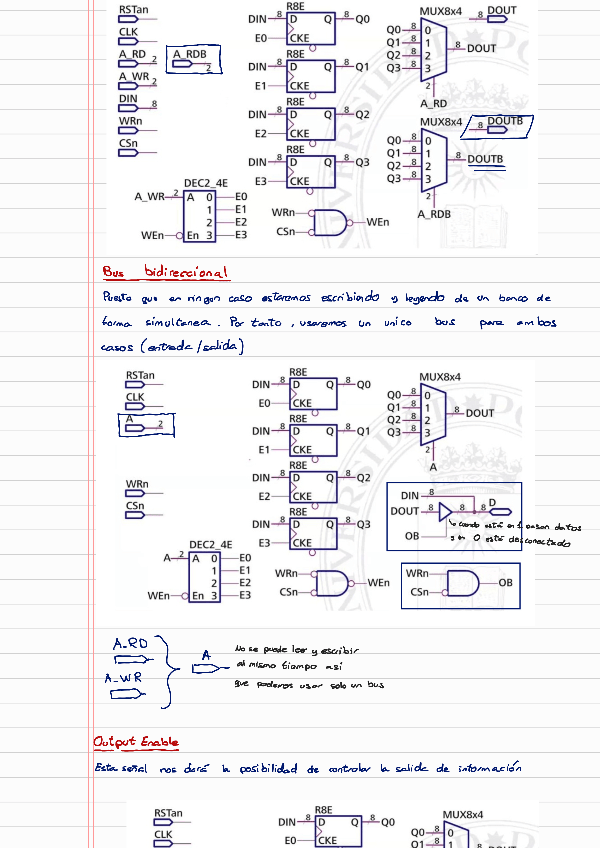 RSTan
CLK
A_RD 2
A_RDB 2
A_WR 2
DIN 8
WRn
CSn
R8E
DIN 8 D Q 8 Q0
E0 CKE
R8E
DIN 8 D Q 8 Q1
E1 CKE
R8E
DIN 8 D Q 8 Q2
E2 CKE
R8E
DIN 8 D Q 8 Q3
E3 CKE
MUX8x4
8 DOUT
Q0 8 0
Q1 8 1
Q2 8 2
Q3 8 3
8 DOUT
2
A_RD
MUX8x4
8 DOUTB
Q0 8 0
Q1 8 1
Q2 8 2
Q3 8 3
8 DOUTB
2
A_RDB
DEC2_4E
A_WR 2 A 0 E0
1 E1
2 E2
WEn En 3 E3
WRn
CSn
WEn
Bus bidireccional
Puesto que en ningun caso estaremos escribiendo y leyendo de un banco de
forma simultanea. Por tanto, usaremos un unico bus para ambos
casos (entrada/salida)
RSTan
CLK
A 2
WRn
CSn
R8E
DIN 8 D Q 8 Q0
E0 CKE
R8E
DIN 8 D Q 8 Q1
E1 CKE
R8E
DIN 8 D Q 8 Q2
E2 CKE
R8E
DIN 8 D Q 8 Q3
E3 CKE
MUX8x4
Q0 8 0
Q1 8 1
Q2 8 2
Q3 8 3
8 DOUT
2
A
DIN 8
DOUT 8 8 8 D
OB
cuando está en 1 pasan datos
y en 0 está desconectado
DEC2_4E
A 2 A 0 E0
1 E1
2 E2
WEn En 3 E3
WRn
CSn
WEn
WRn
CSn
OB
A_RD
A_WR
A
No se puede leer y escribir
al mismo tiempo así
que podemos usar solo un bus
Output Enable
Esta señal nos dará la posibilidad de controlar la salida de información
RSTan
CLK
R8E
DIN 8 D Q 8 Q0
E0 CKE
MUX8x4
Q0 8 0
Q1 8 1